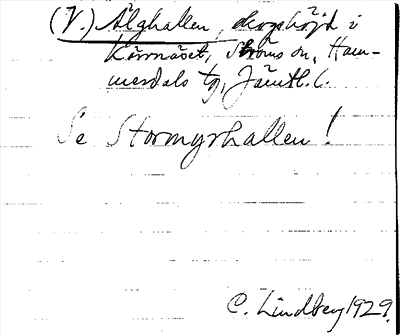 (V.) Älghallen, skogshöjd i
Kärrnäset, Ströms sn, Ham-
merdals tg, Jämtl. l.
Se Stormyrhallen!
C. Lindberg 1929.